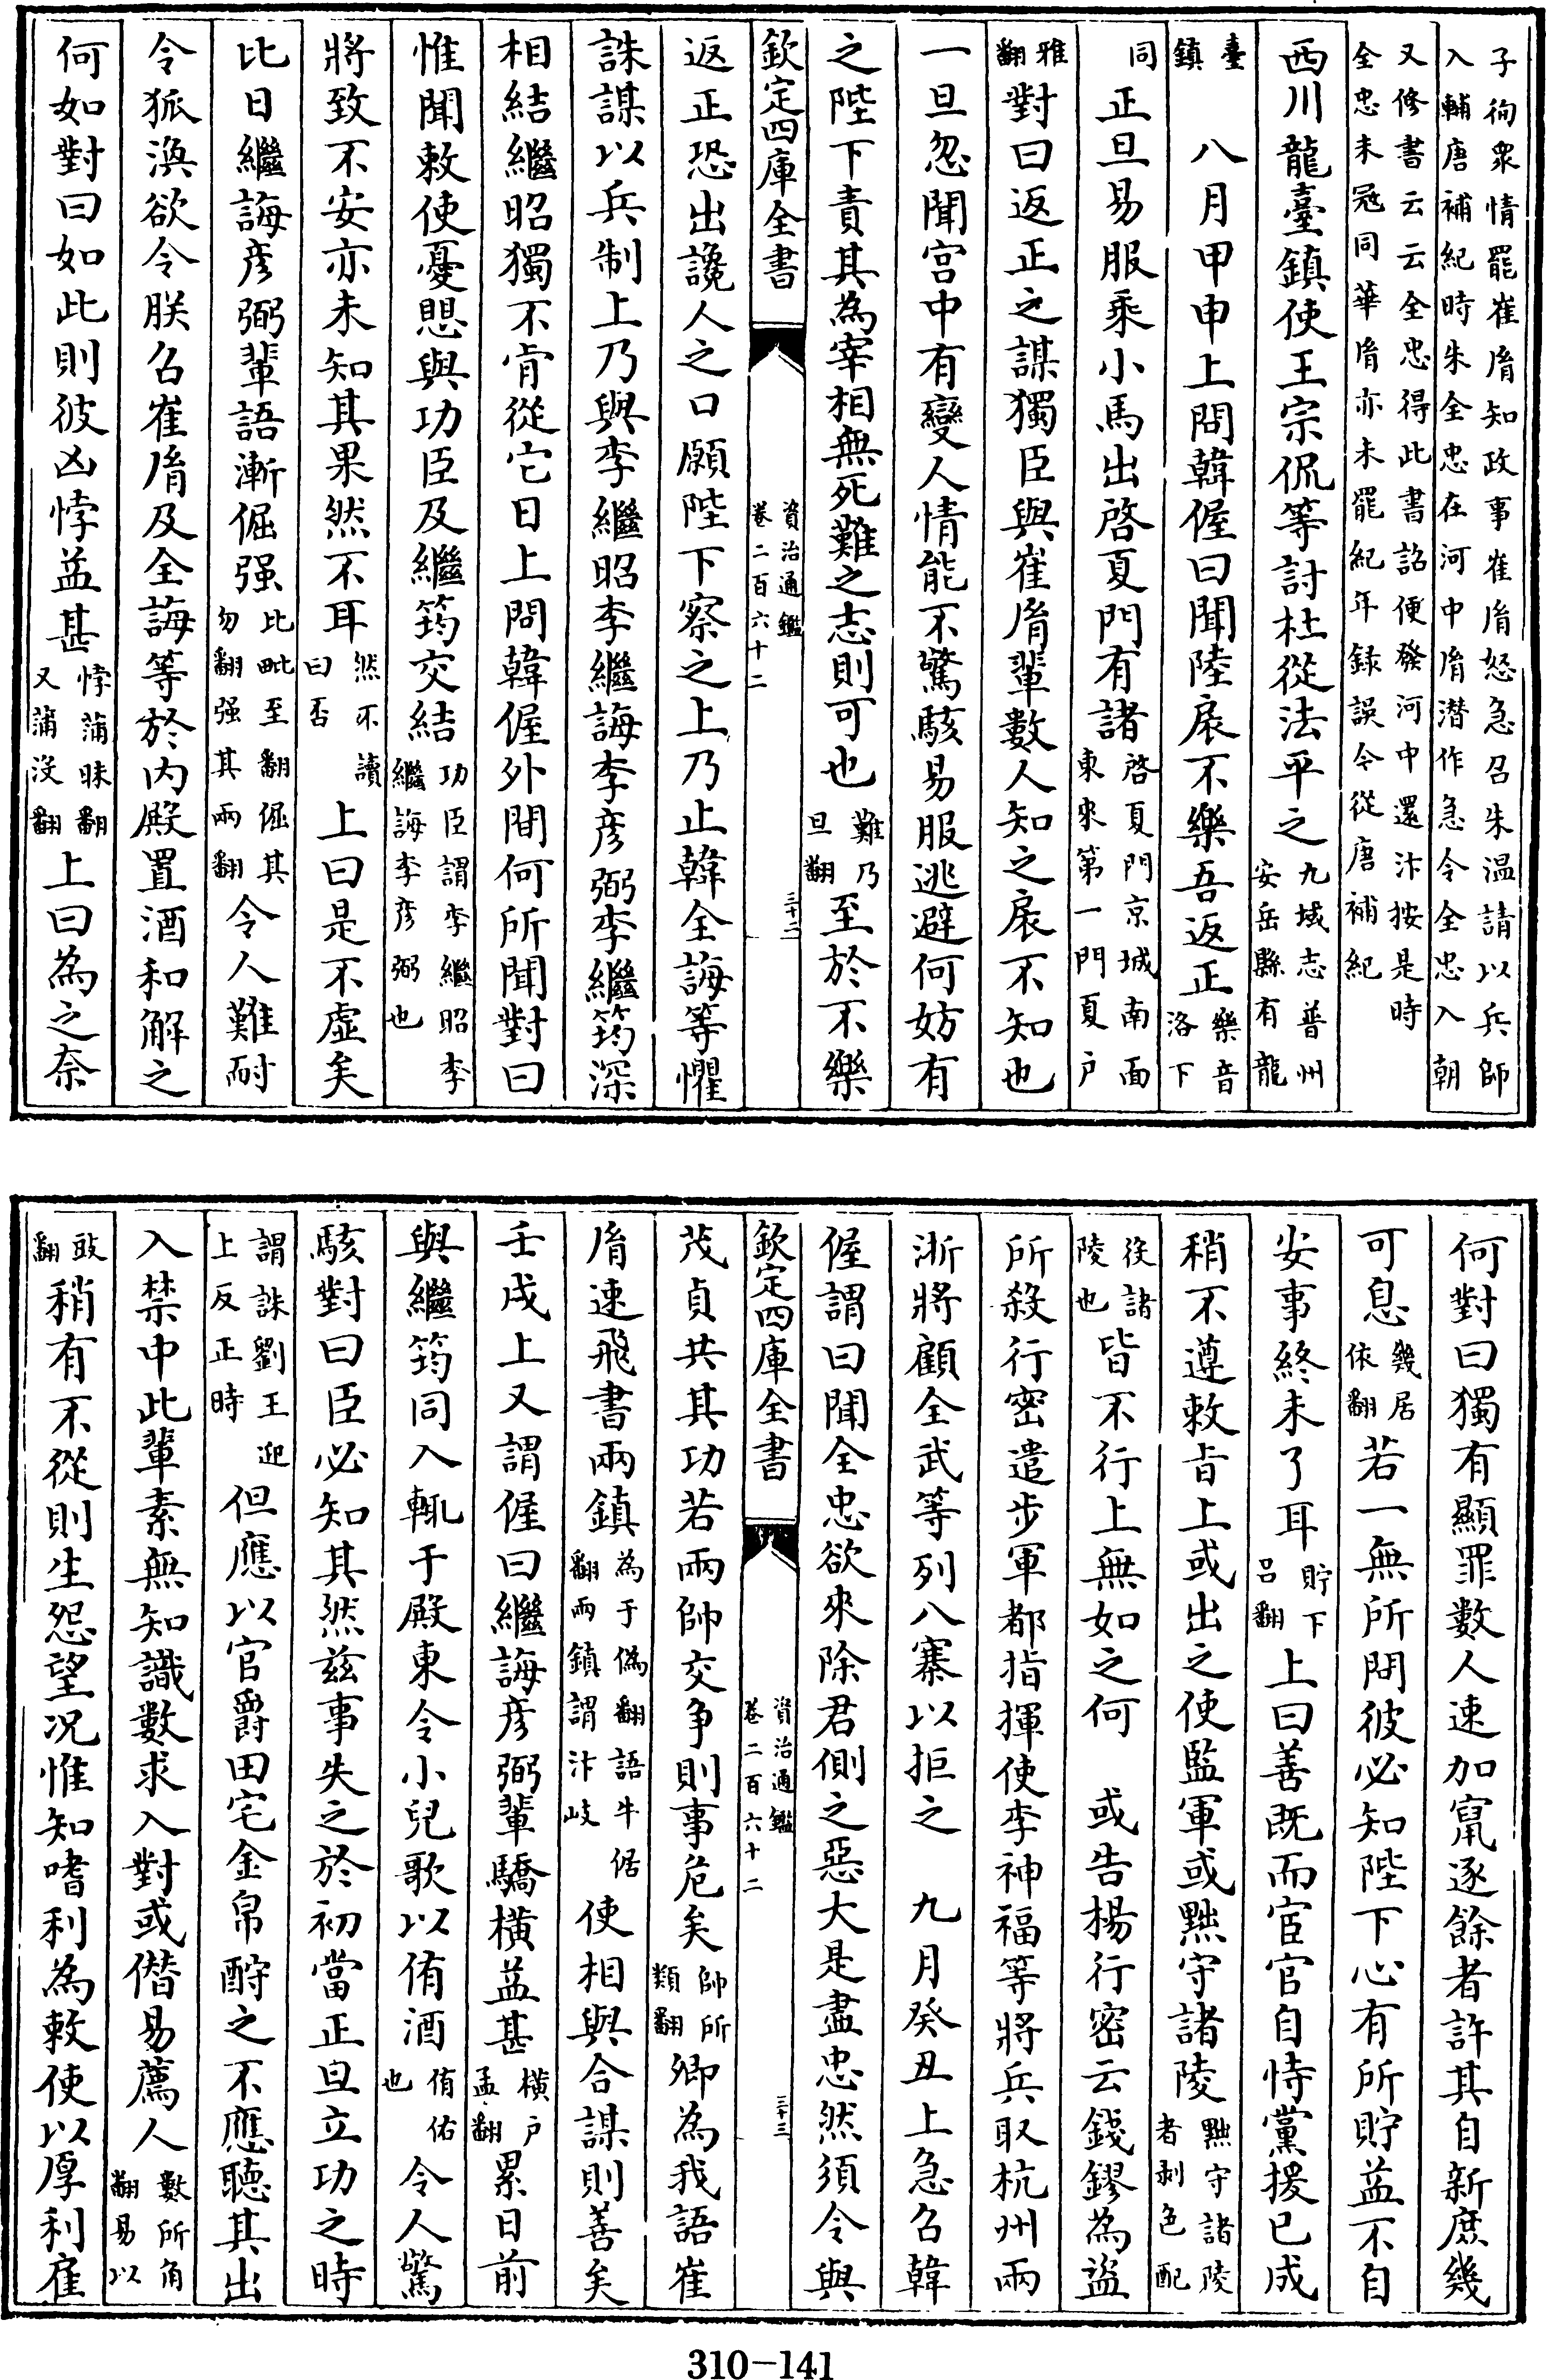 子徇衆情罷崔𦙍知政事崔𦙍怒急召朱温請以兵師
入輔唐補紀時朱全忠在河中𦙍潜作急令全忠入朝
又修書云云全忠得此書詔便發河中還汴按是時
全忠未冦同華𦙍亦未罷紀年録誤今從唐補紀
西川龍臺鎮使王宗侃等討杜從法平之九域志普州安岳縣有龍
臺鎮　八月甲申上問韓偓曰聞陸扆不樂吾返正樂音洛下
同正旦易服乘小馬出啓夏門有諸啓夏門京城南面東來第一門夏户
雅翻對曰返正之謀獨臣與崔𦙍輩數人知之扆不知也
一旦忽聞宫中有變人情能不驚駭易服逃避何妨有
之陛下責其為宰相無死難之志則可也難乃旦翻至於不樂
欽定四庫全書　資治通鑑卷二百六十二　三十二
返正恐出讒人之口願陛下察之上乃止韓全誨等懼
誅謀以兵制上乃與李繼昭李繼誨李彦弼李繼筠深
相結繼昭獨不肯從它日上問韓偓外間何所聞對曰
惟聞敕使憂懼與功臣及繼筠交結功臣謂李繼昭李繼誨李彦弼也
將致不安亦未知其果然不耳然不讀曰否上曰是不虚矣
比日繼誨彦弼輩語漸倔强比毗至翻倔其勿翻强其兩翻令人難耐
令狐渙欲令朕召崔𦙍及全誨等於内殿置酒和解之
何如對曰如此則彼凶悖益甚悖蒲昧翻又蒲沒翻上曰為之奈
何對曰獨有顯罪數人速加竄逐餘者許其自新庶幾
可息幾居依翻若一無所問彼必知陛下心有所貯益不自
安事終未了耳貯丁吕翻上曰善既而宦官自恃黨援已成
稍不遵敕旨上或出之使監軍或黜守諸陵黜守諸陵者剥色配
役諸陵也皆不行上無如之何　或告楊行密云錢鏐為盗
所殺行密遣步軍都指揮使李神福等將兵取杭州兩
浙將顧全武等列八寨以拒之　九月癸丑上急召韓
偓謂曰聞全忠欲來除君側之惡大是盡忠然須令與
欽定四庫全書　資治通鑑卷二百六十二　三十三
茂貞共其功若兩帥交争則事危矣帥所類翻卿為我語崔
𦙍速飛書兩鎮為于偽翻語牛倨翻兩鎮謂汴岐使相與合謀則善矣
壬戌上又謂偓曰繼誨彦弼輩驕横益甚横户孟翻累日前
與繼筠同入輒于殿東令小兒歌以侑酒侑佑也令人驚
駭對曰臣必知其然兹事失之於初當正旦立功之時
謂誅劉王迎上反正時但應以官爵田宅金帛酧之不應聽其出
入禁中此輩素無知識數求入對或僭易薦人數所角翻易以
豉翻稍有不從則生怨望况惟知嗜利為敕使以厚利雇
310-141